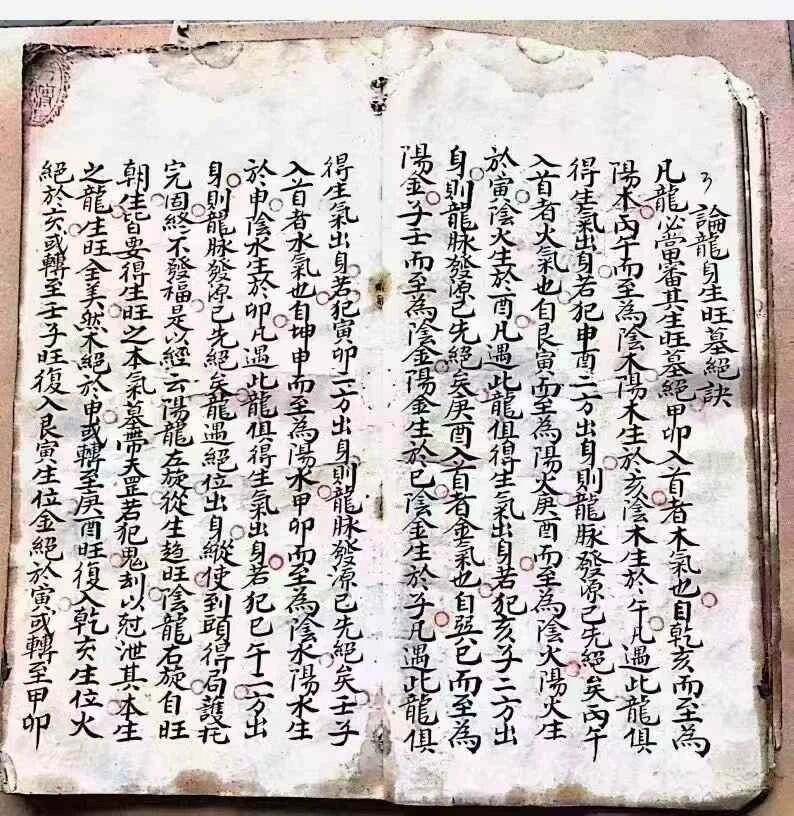 論龍身生旺墓絕訣
凡龍必當審其生旺墓絕甲卯入首者木氣也自乾亥而至為
陽木丙午而至為陰木陽木生於亥陰木生於午凡遇此龍俱
得生氣出身若犯申酉二方出身則龍脉發源已先絕矣丙午
入首者火氣也自艮寅而至為陽火庚酉而至為陰火陽火生
於寅陰火生於酉凡遇此龍俱得生氣出身若犯亥子二方出
身則龍脉發源已先絕矣庚酉入首者金氣也自巽巳而至為
陽金子壬而至為陰金陽金生於巳陰金生於子凡遇此龍俱
得生氣出身若犯寅卯二方出身則龍脉發源已先絕矣壬子
入首者水氣也自坤申而至為陽水甲卯而至為陰水陽水生
於申陰水生於卯凡遇此龍俱得生氣出身若犯巳午二方出
身則龍脉發源已先絕矣龍遇絕位出身縱使到頭得局護托
完固終不發福是以經云陽龍左旋從生趋旺陰龍右旋自旺
朝生皆要得生旺之本氣墓帶天罡若犯鬼刼以尅泄其本生
之龍生旺全美然木絕於申或轉至庚酉旺復入乾亥生位火
絕於亥或轉至壬子旺復入艮寅生位金絕於寅或轉至甲卯